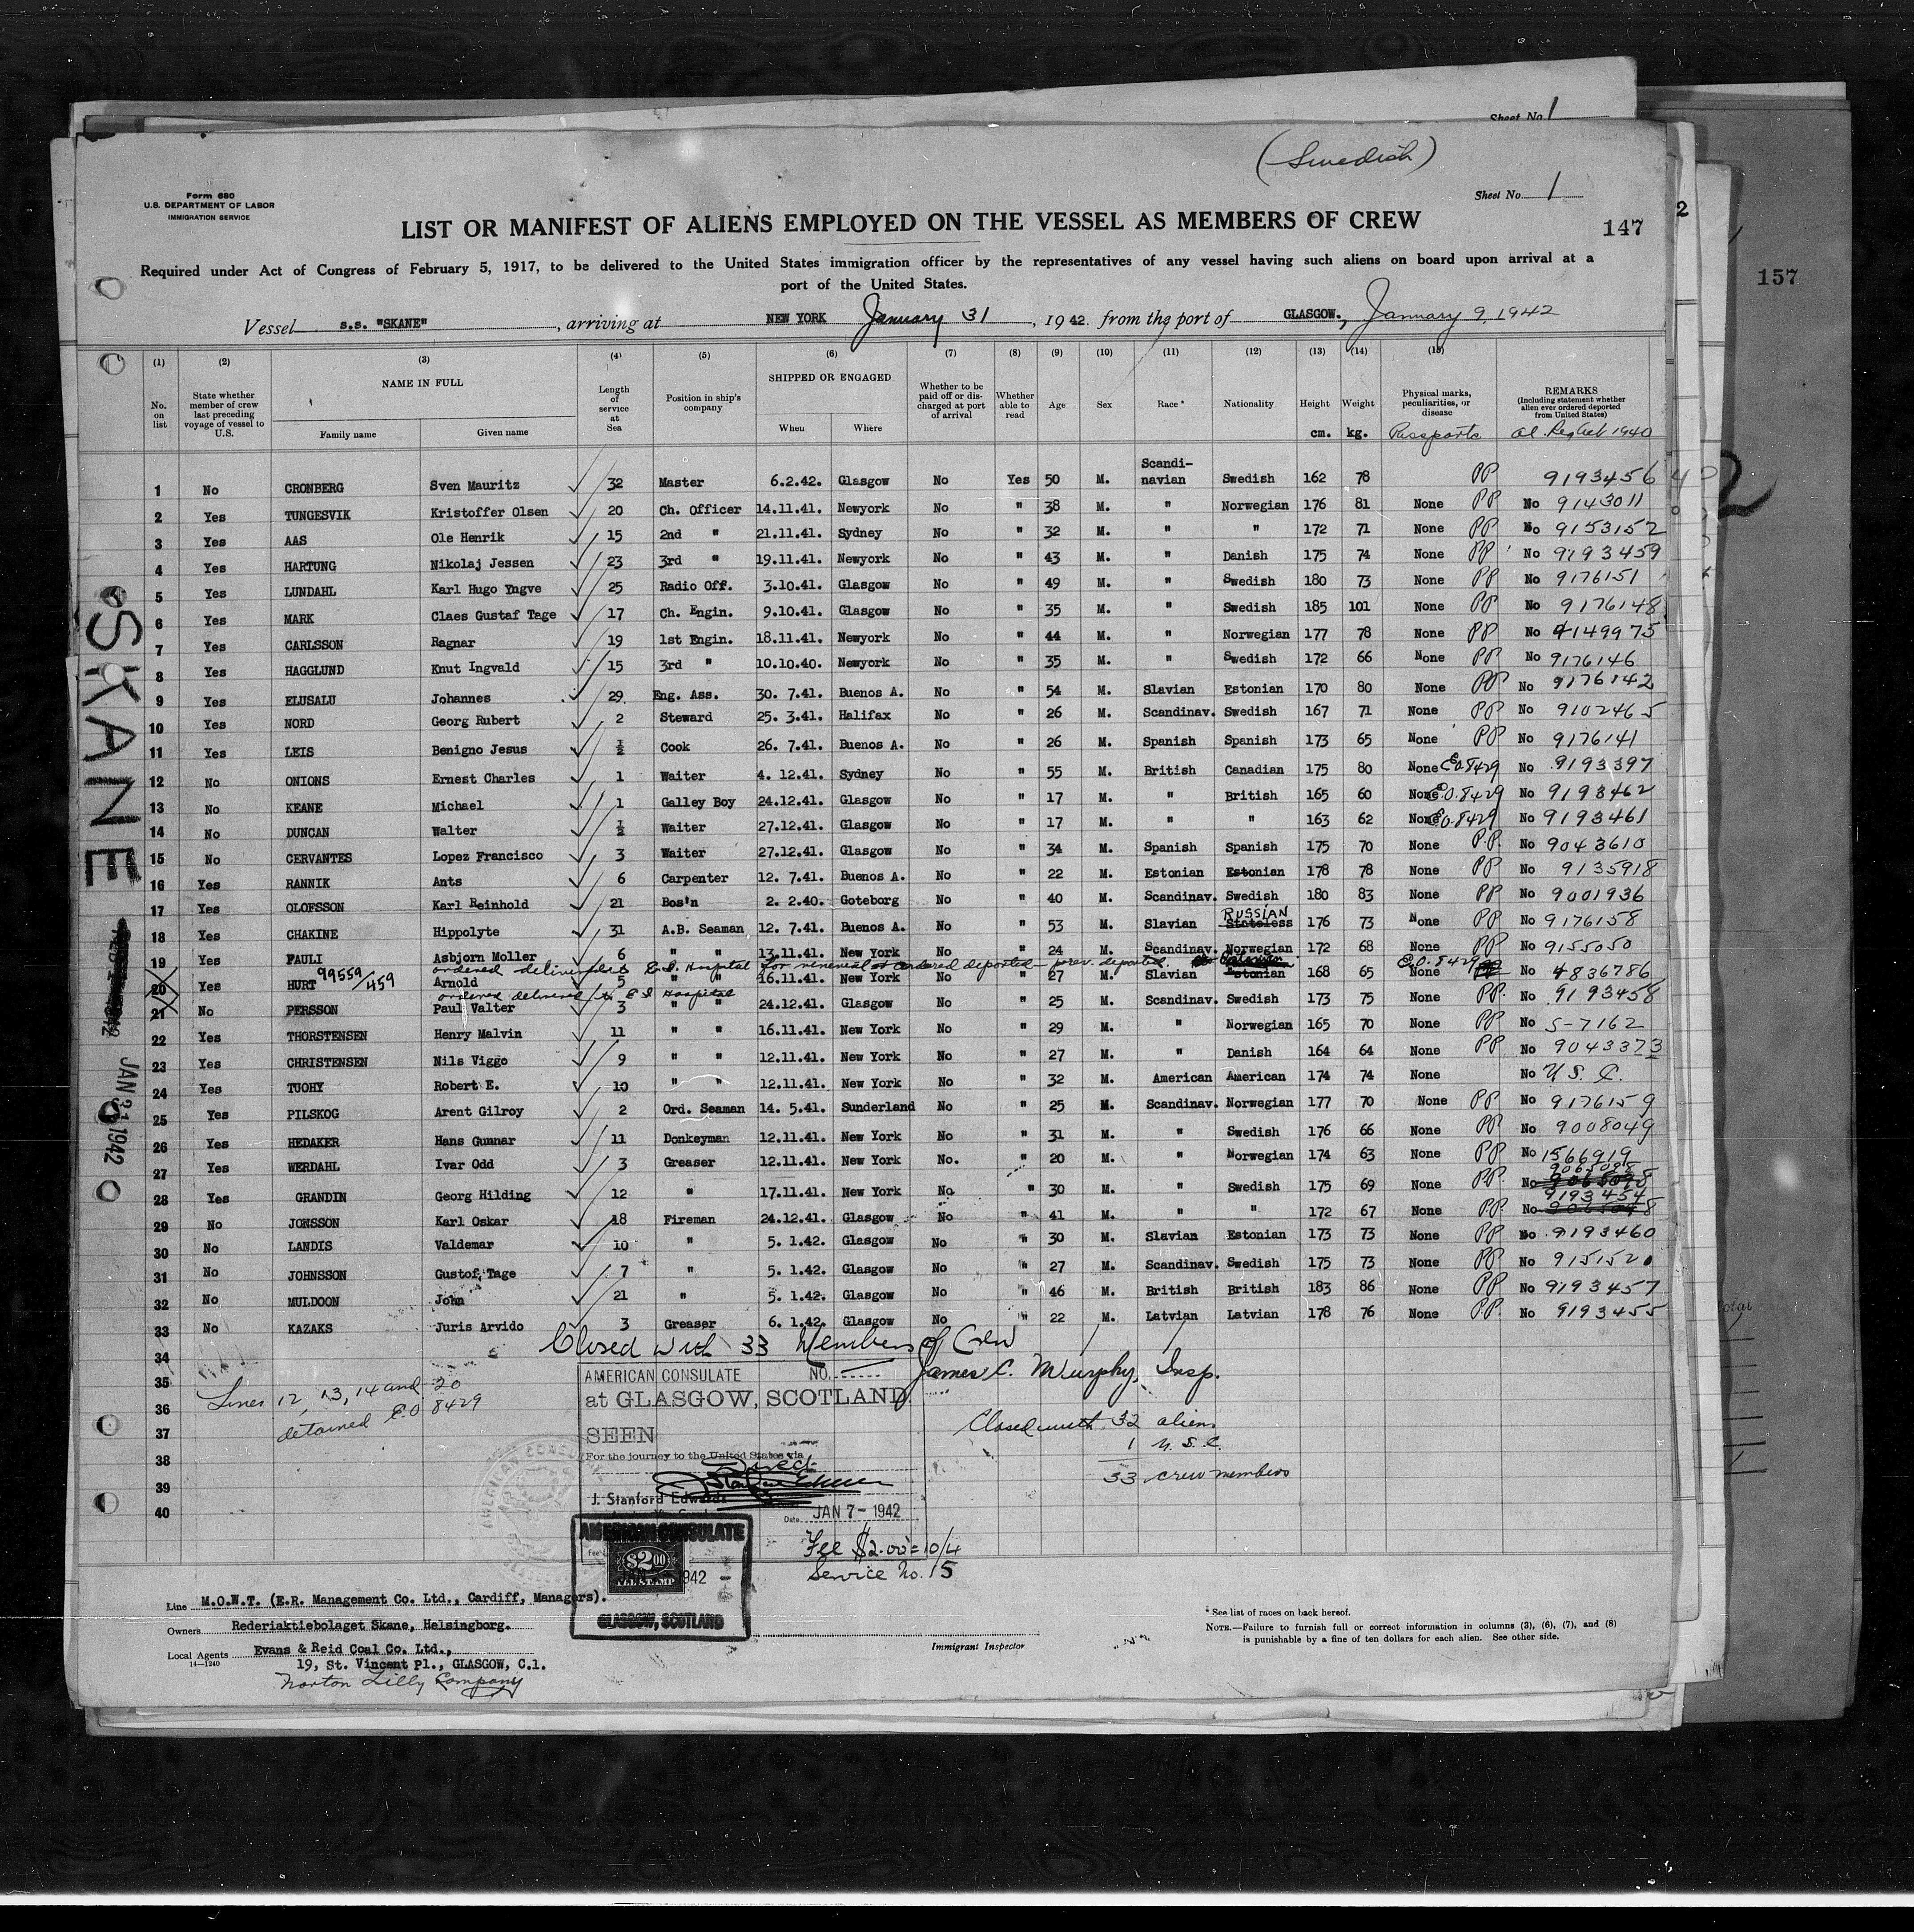 Sheet No. 1
(Swedish)
Form 680
U.S. DEPARTMENT OF LABOR
IMMIGRATION SERVICE
Sheet No. 1
LIST OR MANIFEST OF ALIENS EMPLOYED ON THE VESSEL AS MEMBERS OF CREW
147
2
157
Required under Act of Congress of February 5, 1917, to be delivered to the United States immigration officer by the representatives of any vessel having such aliens on board upon arrival at a
port of the United States.
Vessel s.s. "SKANE", arriving at NEW YORK January 31, 1942. from the port of GLASGOW, January 9, 1942
(1) (2) (3) (4) (5) (6) (7) (8) (9) (10) (11) (12) (13) (14) (15)
No. on list | State whether member of crew last preceding voyage of vessel to U.S. | NAME IN FULL Family name Given name | Length of service at Sea | Position in ship's company | SHIPPED OR ENGAGED When Where | Whether to be paid off or discharged at port of arrival | Whether able to read | Age | Sex | Race* | Nationality | Height cm. | Weight kg. | Physical marks, peculiarities, or disease Passports | REMARKS (Including statement whether alien ever ordered deported from United States) Al. Reg Act 1940
1 No CRONBERG Sven Mauritz 32 Master 6.2.42. Glasgow No Yes 50 M. Scandi-navian Swedish 162 78 PP 9193456
2 Yes TUNGESVIK Kristoffer Olsen 20 Ch. Officer 14.11.41. Newyork No " 38 M. " Norwegian 176 81 None PP No 9143011
3 Yes AAS Ole Henrik 15 2nd " 21.11.41. Sydney No " 32 M. " " 172 71 None PP No 9153152
4 Yes HARTUNG Nikolaj Jessen 23 3rd " 19.11.41. Newyork No " 43 M. " Danish 175 74 None PP No 9193459
5 Yes LUNDAHL Karl Hugo Yngve 25 Radio Off. 3.10.41. Glasgow No " 49 M. " Swedish 180 73 None PP No 9176151
6 Yes MARK Claes Gustaf Tage 17 Ch. Engin. 9.10.41. Glasgow No " 35 M. " Swedish 185 101 None PP No 9176148
7 Yes CARLSSON Ragnar 19 1st Engin. 18.11.41. Newyork No " 44 M. " Norwegian 177 78 None PP No 4149975
8 Yes HAGGLUND Knut Ingvald 15 3rd " 10.10.40. Newyork No " 35 M. " Swedish 172 66 None PP No 9176146
9 Yes ELUSALU Johannes 29. Eng. Ass. 30. 7.41. Buenos A. No " 54 M. Slavian Estonian 170 80 None PP No 9176142
10 Yes NORD Georg Rubert 2 Steward 25. 3.41. Halifax No " 26 M. Scandinav. Swedish 167 71 None PP No 9102465
11 Yes LEIS Benigno Jesus ½ Cook 26. 7.41. Buenos A. No " 26 M. Spanish Spanish 173 65 None PP No 9176141
12 No ONIONS Ernest Charles 1 Waiter 4. 12.41. Sydney No " 55 M. British Canadian 175 80 None E.O.8429 No 9193397
13 No KEANE Michael 1 Galley Boy 24.12.41. Glasgow No " 17 M. " British 165 60 None E.O.8429 No 9193462
14 No DUNCAN Walter ½ Waiter 27.12.41. Glasgow No " 17 M. " " 163 62 None E.O.8429 No 9193461
15 No CERVANTES Lopez Francisco 3 Waiter 27.12.41. Glasgow No " 34 M. Spanish Spanish 175 70 None P.P. No 9043610
16 Yes RANNIK Ants 6 Carpenter 12. 7.41. Buenos A. No " 22 M. Estonian Estonian 178 78 None PP No 9135918
17 Yes OLOFSSON Karl Reinhold 21 Bos'n 2. 2.40. Goteborg No " 40 M. Scandinav. Swedish 180 83 None PP No 9001936
18 Yes CHAKINE Hippolyte 31 A.B. Seaman 12. 7.41. Buenos A. No " 53 M. Slavian RUSSIAN Stateless 176 73 None PP No 9176158
19 Yes PAULI Asbjorn Moller 6 " " 13.11.41. New York No " 24 M. Scandinav. Norwegian 172 68 None PP No 9155050
20 Yes HURT 99559/459 Arnold 5 " " 16.11.41. New York No " 27 M. Slavian Estonian 168 65 None E.O.8429 No 4836786
ordered delivered to E.I. Hospital
21 No PERSSON Paul Valter 3 " " 24.12.41. Glasgow No " 25 M. Scandinav. Swedish 173 75 None PP. No 9193458
22 Yes THORSTENSEN Henry Malvin 11 " " 16.11.41. New York No " 29 M. " Norwegian 165 70 None PP No 5-7162
23 Yes CHRISTENSEN Nils Viggo 9 " " 12.11.41. New York No " 27 M. " Danish 164 64 None PP No 9043373
24 Yes TUOHY Robert E. 10 " " 12.11.41. New York No " 32 M. American American 174 74 None No U.S.C.
25 Yes PILSKOG Arent Gilroy 2 Ord. Seaman 14. 5.41. Sunderland No " 25 M. Scandinav. Norwegian 177 70 None PP No 9176159
26 Yes HEDAKER Hans Gunnar 11 Donkeyman 12.11.41. New York No " 31 M. " Swedish 176 66 None PP No 9008049
27 Yes WERDAHL Ivar Odd 3 Greaser 12.11.41. New York No. " 20 M. " Norwegian 174 63 None PP No 1566919
28 Yes GRANDIN Georg Hilding 12 " 17.11.41. New York No " 30 M. " Swedish 175 69 None PP. No
29 No JONSSON Karl Oskar 18 Fireman 24.12.41. Glasgow No " 41 M. " " 172 67 None PP. No 9193454
30 No LANDIS Valdemar 10 " 5. 1.42. Glasgow No " 30 M. Slavian Estonian 173 73 None PP No 9193460
31 No JOHNSSON Gustof, Tage 7 " 5. 1.42. Glasgow No " 27 M. Scandinav. Swedish 175 73 None PP No 9151520
32 No MULDOON John 21 " 5. 1.42. Glasgow No " 46 M. British British 183 86 None PP No 9193457
33 No KAZAKS Juris Arvido 3 Greaser 6. 1.42. Glasgow No " 22 M. Latvian Latvian 178 76 None P.P. No 9193455
Closed with 33 Members of Crew
34
35
36
37
38
39
40
James C. Murphy, Insp.
Lines 12, 13, 14 and 20
detained E.O 8429
AMERICAN CONSULATE NO.
at GLASGOW, SCOTLAND
SEEN
For the journey to the United States via
Direct
J. Stanford Edwards
Date JAN 7 - 1942
Closed with 32 aliens
1 U.S.C.
33 crew members
Fee $2.00 = 10/4
Service No. 15
AMERICAN CONSULATE
$2.00
1942
GLASGOW, SCOTLAND
SKANE
JAN 31 1942
Line M.O.W.T. (E.R. Management Co. Ltd., Cardiff, Managers).
Owners Rederiaktiebolaget Skane, Helsingborg.
Local Agents Evans & Reid Coal Co. Ltd.,
14-1240
19, St. Vincent Pl., GLASGOW, C.1.
Norton Lilly Company
Immigrant Inspector
* See list of races on back hereof.
NOTE.—Failure to furnish full or correct information in columns (3), (6), (7), and (8)
is punishable by a fine of ten dollars for each alien. See other side.